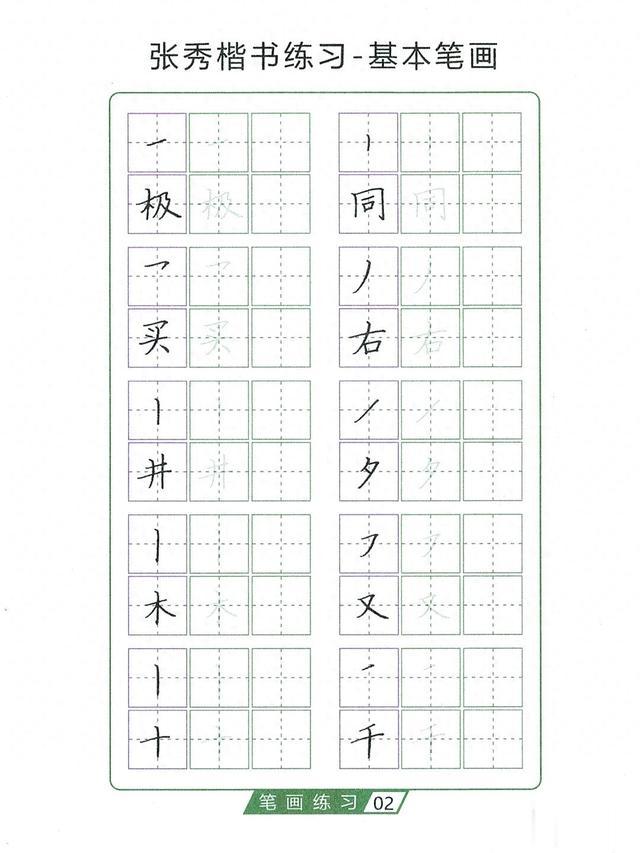 张秀楷书练习-基本笔画
一 丨
极 极 同 同
乛 乛 丿 丿
买 买 右 右
丨 ㇒ ㇒
井 井 夕 夕
丨 ㇇ ㇇
木 木 又 又
丨 ㇒
十 十 千 千
笔画练习 02